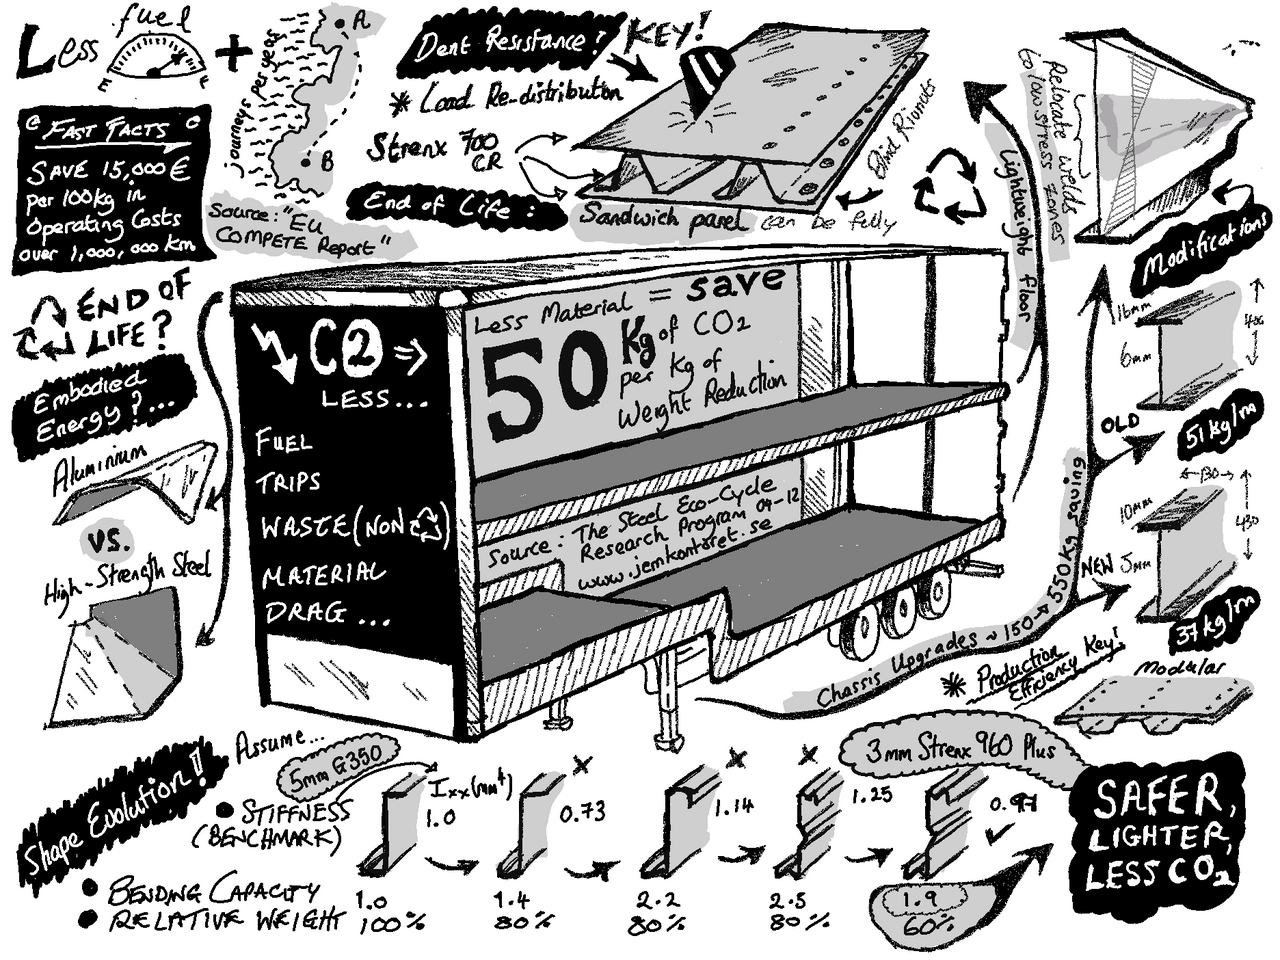 Less fuel +
E F
journeys per year
A
B
Source: "EU
COMPETE Report"
FAST FACTS
SAVE 15,000 €
Per 100kg in
Operating Costs
over 1,000,000 km
Dent Resistance!
KEY!
* Load Re-distribution
Strenx 700
CR
Blind Rivnuts
End of Life:
Sandwich panel can be fully
Lightweight floor
Relocate welds
to low stress zones
Modifications
END OF
LIFE?
Embodied
Energy?...
Aluminium
VS.
High-Strength Steel
CO2 ⇒
LESS...
FUEL
TRIPS
WASTE (NON )
MATERIAL
DRAG...
Less Material = save
50 Kg of CO2
per kg of
Weight Reduction
Source: The Steel Eco-Cycle
Research Program 04-12
www.jernkontoret.se
16mm
6mm
OLD
51 kg/m
130
10mm
430
NEW 5mm
37 kg/m
Chassis Upgrades ~ 150 → 550 kg saving
* Production
Efficiency Key!
Modular
Shape Evolution!
Assume...
5mm G350
STIFFNESS
(BENCHMARK)
Ixx (mm⁴)
1.0
0.73
1.14
1.25
3mm Strenx 960 Plus
BENDING CAPACITY 1.0 1.4 2.2 2.5 1.9
RELATIVE WEIGHT 100% 80% 80% 80% 60%
SAFER,
LIGHTER,
LESS CO2